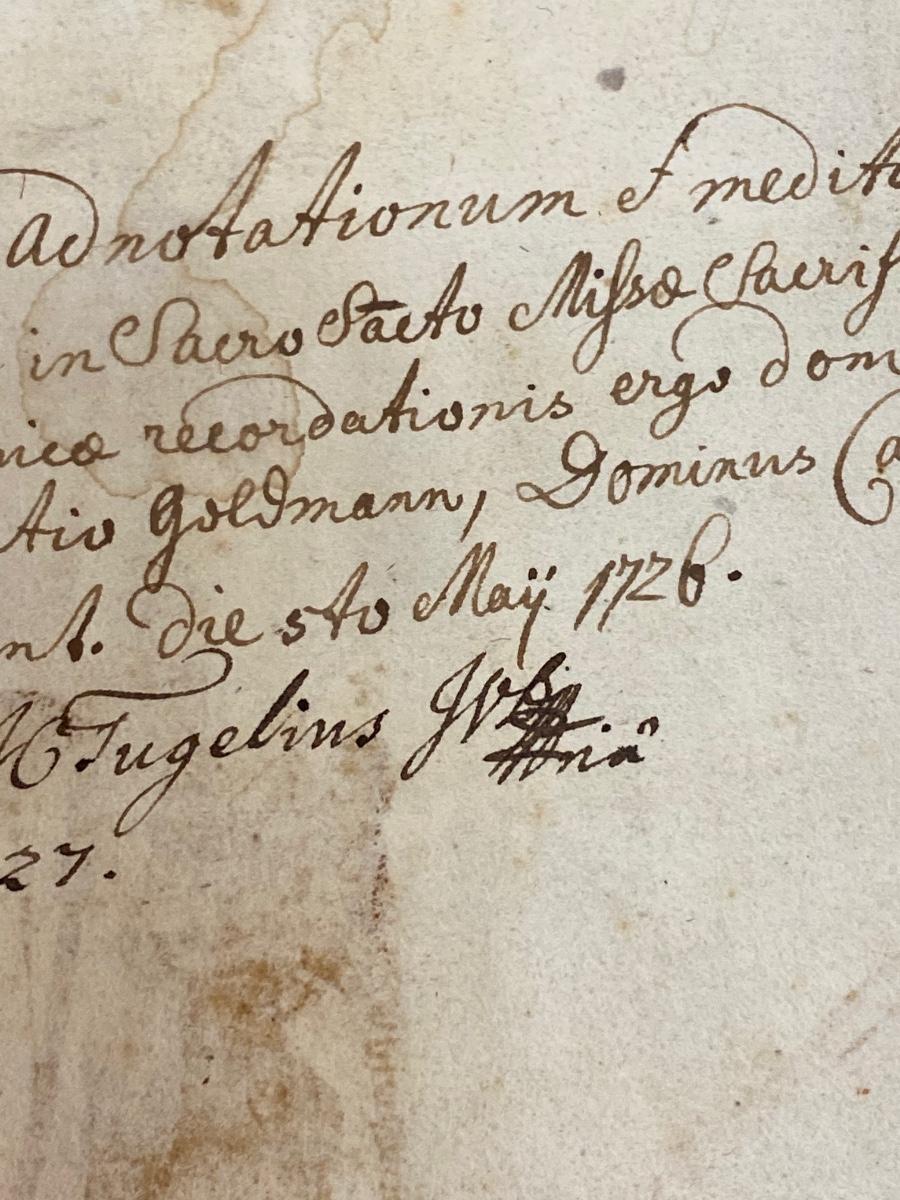 adnotationum et medita
in Sacro Sācto Missæ Sacrif
nicæ recordationis ergo dom
tio Goldmann, Dominus Ca
nt. Die 5to Maij 1726.
Tugelius
27.